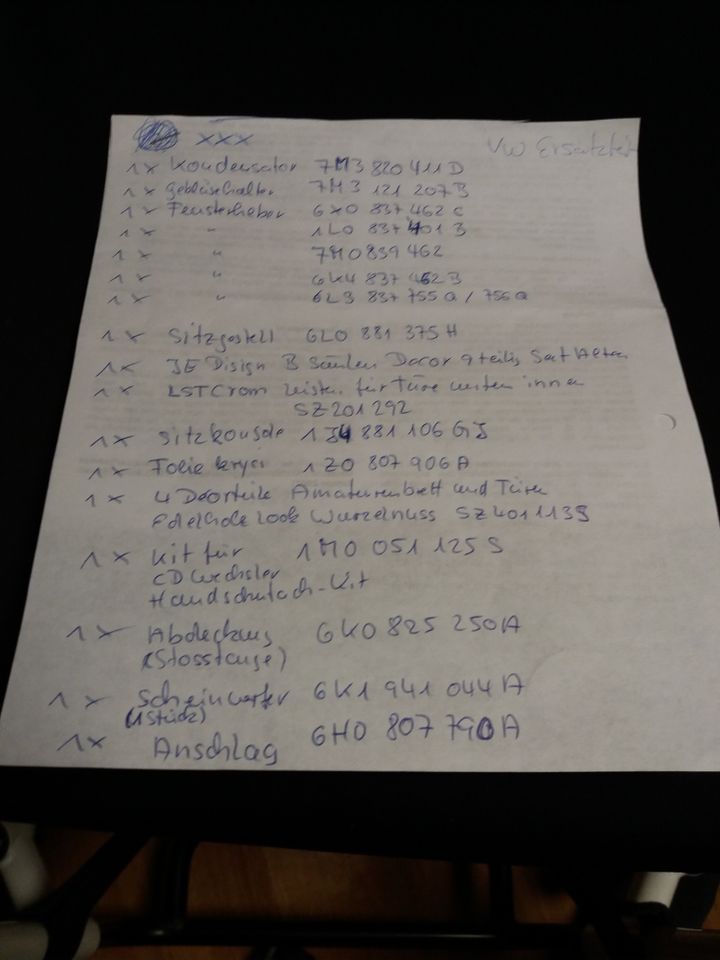 xxx VW Ersatzteil
1x Kondensator 7M3 820 411 D
1x Gebläsehalter 7M3 121 207 B
1x Fensterheber 6X0 837 462 C
1x " 1L0 837 401 B
1x " 7M0 839 462
1x " 6K4 837 462 B
1x " 6L3 837 755 Q / 756 Q
1x Sitzgestell 6L0 881 375 H
1x JE Disign B Säulen Decor 9 teilig Seat Altea
1x LST Crom Leisten für Türe unten innen
SZ 201 292
1x Sitzkonsole 1J4 881 106 GJ
1x Folie 1Z0 807 906 A
1x 4 Decorteile Amaturenbett und Türen
Edelholz Look Wurzelnuss SZ 401 113S
1x Kit für 1M0 051 125 S
CD Wechsler
Handschufach-Kit
1x Abdeckung 6K0 825 250 A
(Stosstange)
1x Scheinwerfer 6K1 941 044 A
(1 Stück)
1x Anschlag 6H0 807 790 A